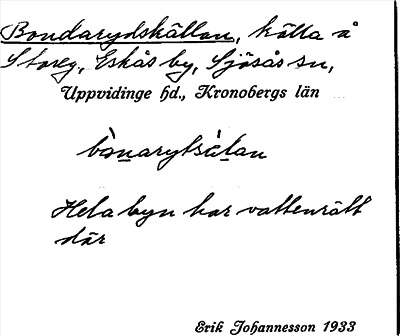 Bondarydskällan, källa å
Storeg, Eskås by, Sjösås sn,
Uppvidinge hd., Kronobergs län
bònarytsɕälan
Hela byn har vattenrätt
där
Erik Johannesson 1933